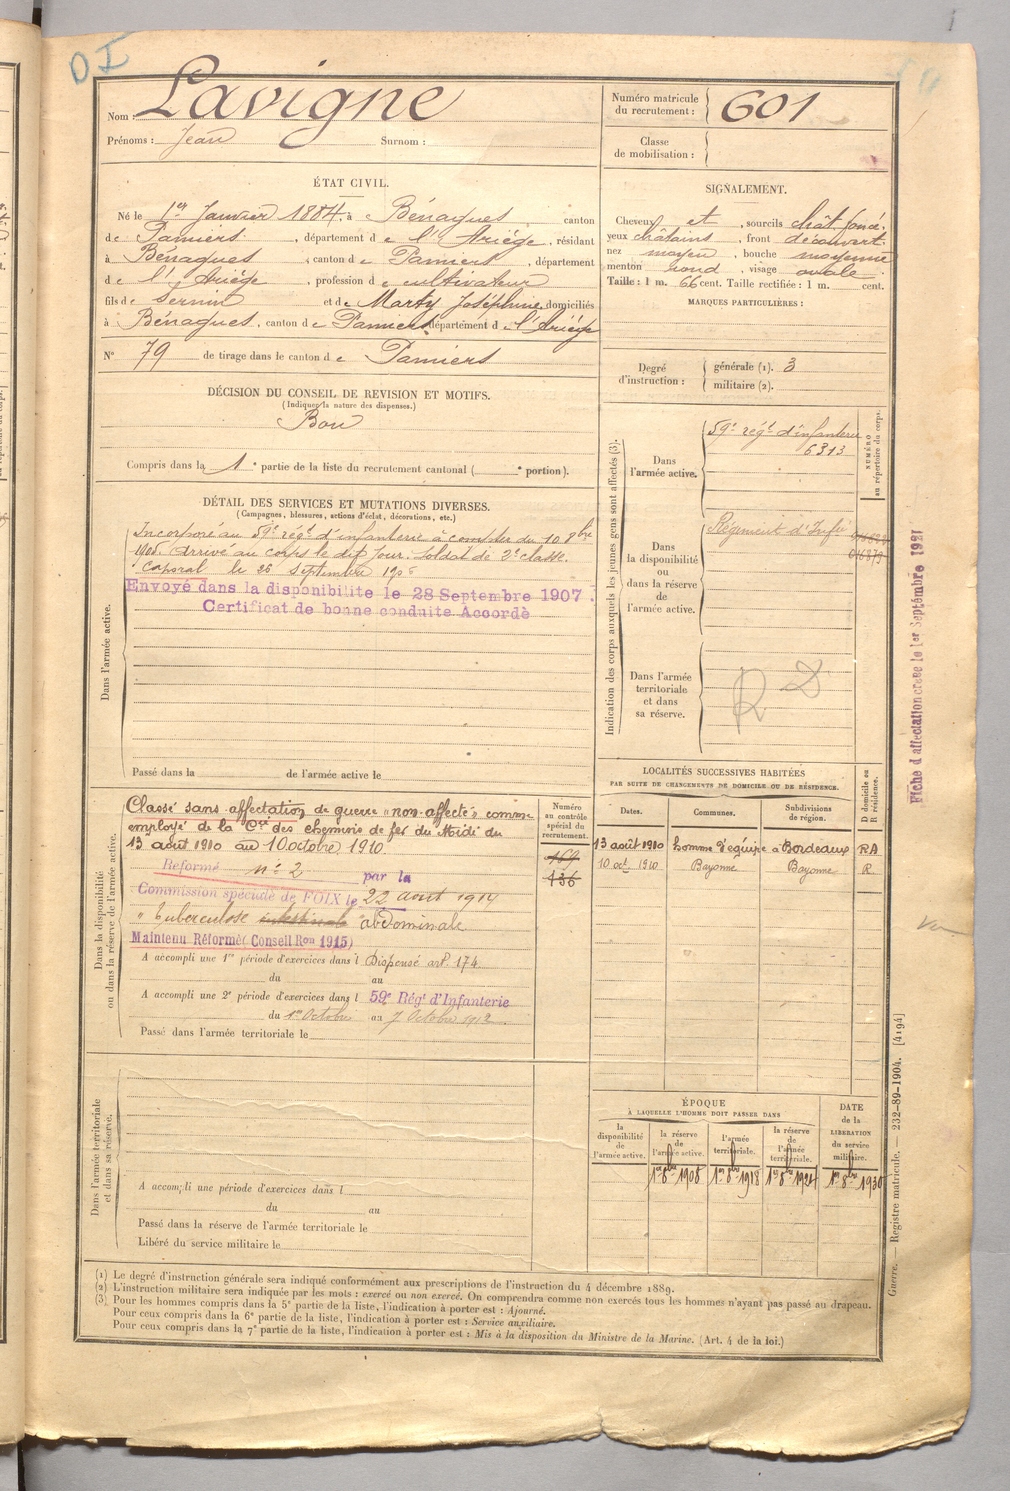 DI
Nom : Lavigne
Prénoms : Jean Surnom :
Numéro matricule
du recrutement : 601
Classe
de mobilisation :
ÉTAT CIVIL.
Né le 1er Janvier 1884, à Bénagues canton
de Pamiers, département de l'Ariège, résidant
à Bénagues, canton de Pamiers, département
de l'Ariège, profession de cultivateur
fils de Sernin et de Marty Joséphine domiciliés
à Bénagues, canton de Pamiers département d l'Ariège
N° 79 de tirage dans le canton de Pamiers
SIGNALEMENT.
Cheveux et, sourcils chât. foncé.
yeux châtains, front découvert.
nez moyen, bouche moyenne
menton rond, visage ovale.
Taille : 1 m. 66 cent. Taille rectifiée : 1 m. cent.
MARQUES PARTICULIÈRES :
Degré
d'instruction :
générale (1). 3
militaire (2).
DÉCISION DU CONSEIL DE REVISION ET MOTIFS.
(Indiquer la nature des dispenses.)
Bon
Compris dans la 1e partie de la liste du recrutement cantonal ( e portion).
DÉTAIL DES SERVICES ET MUTATIONS DIVERSES.
(Campagnes, blessures, actions d'éclat, décorations, etc.)
Dans l'armée active.
Incorporé au 59e régt d'infanterie à compter du 10 8bre
1905. Arrivé au corps le dit jour. Soldat de 2e classe.
Caporal le 26 Septembre
Envoyé dans la disponibilite le 28 Septembre 1907.
Certificat de bonne conduite Accordè
Passé dans la de l'armée active le
Indication des corps auxquels les jeunes gens sont affectés (3).
NUMÉRO
au répertoire du corps.
Dans
l'armée active.
59e régt d'infanterie
6313
Dans
la disponibilité
ou
dans la réserve
de
l'armée active.
Régiment d'Infie
Dans l'armée
territoriale
et dans
sa réserve.
Fiche d'affectation créée le 1er Septembre 1927
Dans la disponibilité
ou dans la réserve de l'armée active.
Classé sans affectation de guerre "non affecté" comme
employé de la Cie des chemins de fer du Midi du
13 août 1910 au 10 octobre 1910
Réformé n° 2 par la
Commission spéciale de FOIX le 22 août 1914
"Tuberculose abdominale
Maintenu Réformé (Conseil Ron 1915)
A accompli une 1re période d'exercices dans l Dispensé art. 174.
du au
A accompli une 2e période d'exercices dans l 59e Régt d'Infanterie
du 1er Octobre au 7 Octobre 1912
Passé dans l'armée territoriale le
Numéro
au contrôle
spécial du
recrutement.
169
136
LOCALITÉS SUCCESSIVES HABITÉES
PAR SUITE DE CHANGEMENTS DE DOMICILE OU DE RÉSIDENCE.
D domicile ou
R résidence.
Dates. Communes. Subdivisions
de région.
13 août 1910 homme d'équipe à Bordeaux RA
10 oct. 1910 Bayonne Bayonne R.
Dans l'armée territoriale
et dans sa réserve.
A accompli une période d'exercices dans l
du au
Passé dans la réserve de l'armée territoriale le
Libéré du service militaire le
ÉPOQUE
À LAQUELLE L'HOMME DOIT PASSER DANS
la
disponibilité
de
l'armée active.
la réserve
de
l'armée active.
l'armée
territoriale.
la réserve
de
l'armée
territoriale.
DATE
de la
LIBÉRATION
du service
militaire.
1er 8bre 1908 1er 8bre 1918 1er 8bre 1924 1er 8bre 1930
Guerre. — Registre matricule. — 232-89-1904. [4194]
(1) Le degré d'instruction générale sera indiqué conformément aux prescriptions de l'instruction du 4 décembre 1889.
(2) L'instruction militaire sera indiquée par les mots : exercé ou non exercé. On comprendra comme non exercés tous les hommes n'ayant pas passé au drapeau.
(3) Pour les hommes compris dans la 5e partie de la liste, l'indication à porter est : Ajourné.
Pour ceux compris dans la 6e partie de la liste, l'indication à porter est : Service auxiliaire.
Pour ceux compris dans la 7e partie de la liste, l'indication à porter est : Mis à la disposition du Ministre de la Marine. (Art. 4 de la loi.)